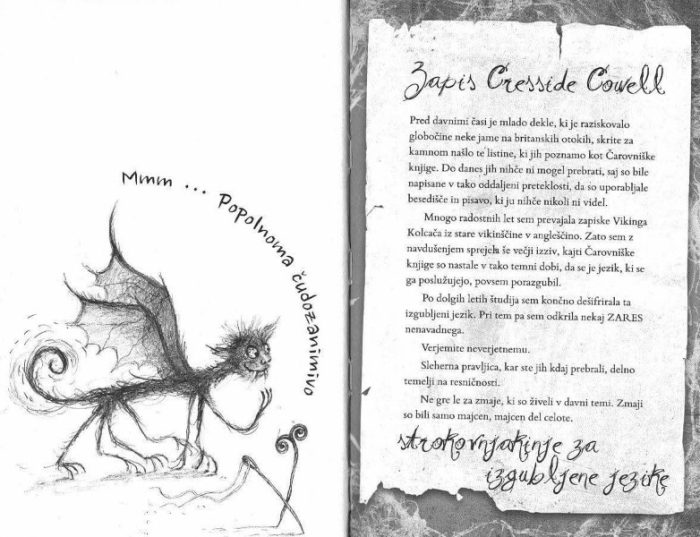 Mmm ... Popolnoma čudozanimivo
Zapis Cresside Cowell
Pred davnimi časi je mlado dekle, ki je raziskovalo
globočine neke jame na britanskih otokih, skrite za
kamnom našlo te listine, ki jih poznamo kot Čarovniške
knjige. Do danes jih nihče ni mogel prebrati, saj so bile
napisane v tako oddaljeni preteklosti, da so uporabljale
besedišče in pisavo, ki ju nihče nikoli ni videl.
Mnogo radostnih let sem prevajala zapiske Vikinga
Kolcača iz stare vikinščine v angleščino. Zato sem z
navdušenjem sprejela še večji izziv, kajti Čarovniške
knjige so nastale v tako temni dobi, da se je jezik, ki se
ga poslužujejo, povsem porazgubil.
Po dolgih letih študija sem končno dešifrirala ta
izgubljeni jezik. Pri tem pa sem odkrila nekaj ZARES
nenavadnega.
Verjemite neverjetnemu.
Sleherna pravljica, kar ste jih kdaj prebrali, delno
temelji na resničnosti.
Ne gre le za zmaje, ki so živeli v davni temi. Zmaji
so bili samo majcen, majcen del celote.
strokovnjakinje za
izgubljene jezike